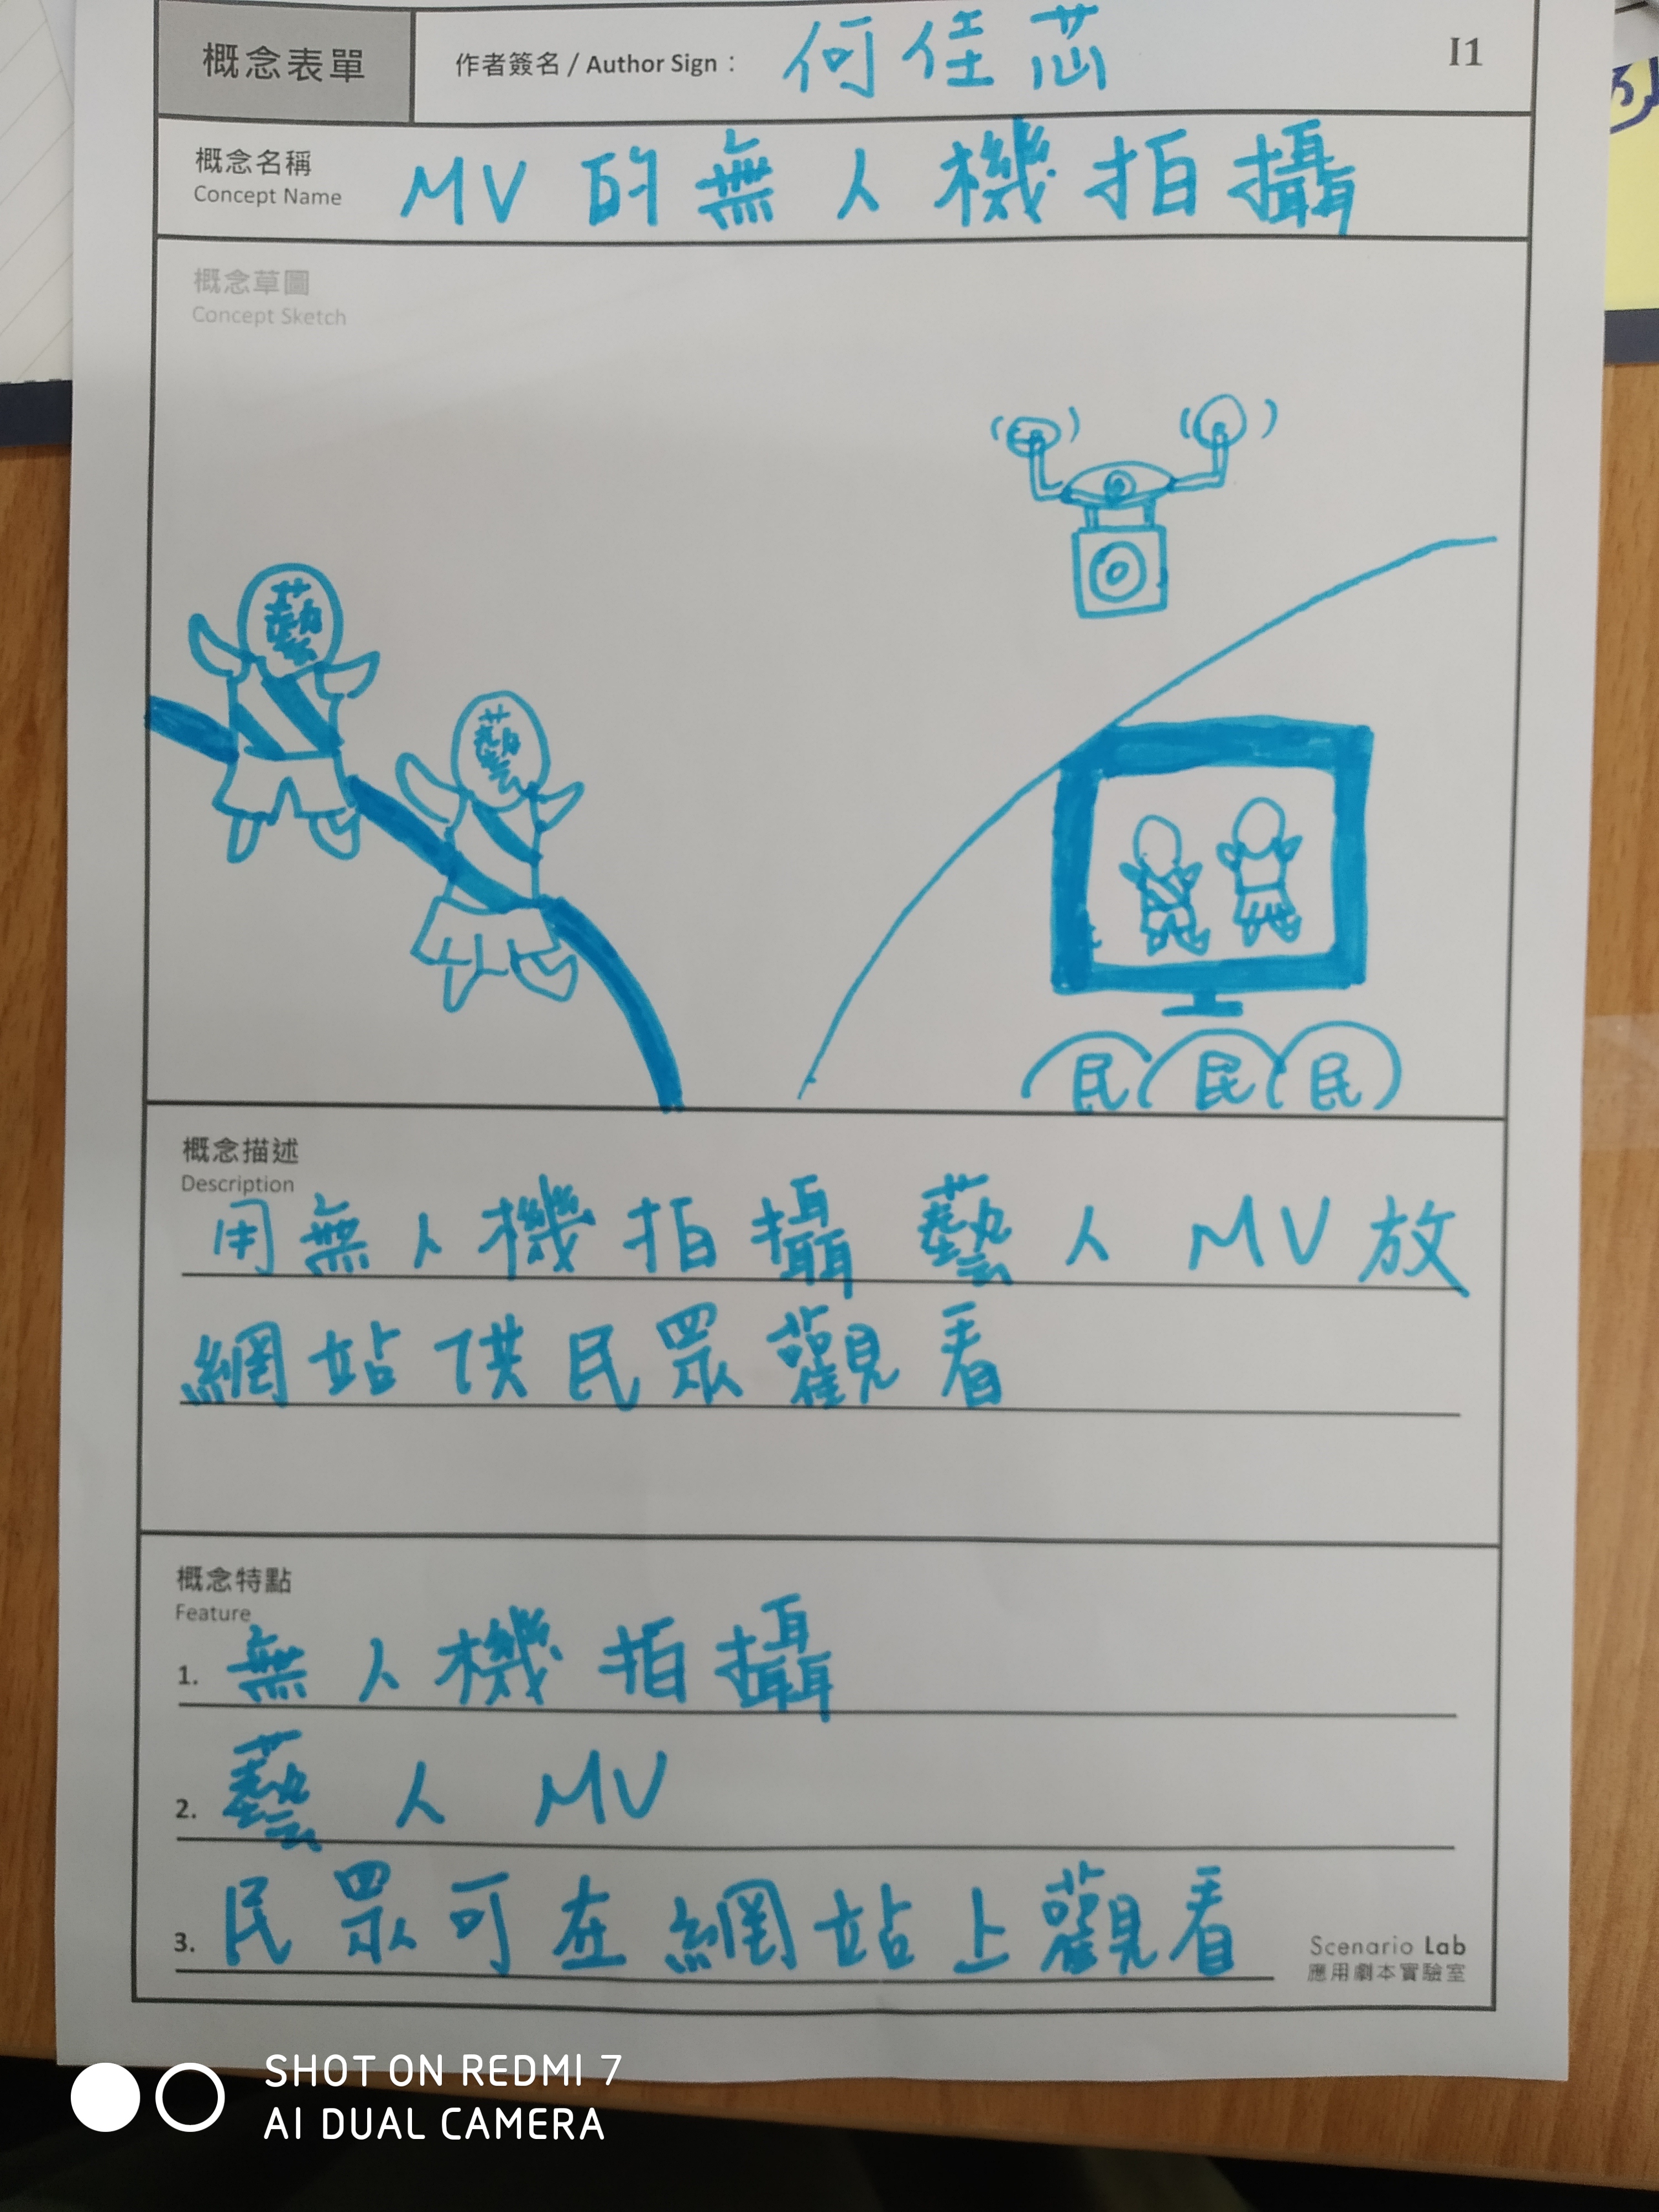 概念表單
作者簽名 / Author Sign： 何佳芯
I1
概念名稱
Concept Name
MV 的無人機拍攝
概念草圖
Concept Sketch
藝
藝
民 民 民
概念描述
Description
用無人機拍攝 藝人 MV 放
網站供民眾觀看
概念特點
Feature
1. 無人機拍攝
2. 藝人 MV
3. 民眾可在網站上觀看
Scenario Lab
應用劇本實驗室
SHOT ON REDMI 7
AI DUAL CAMERA